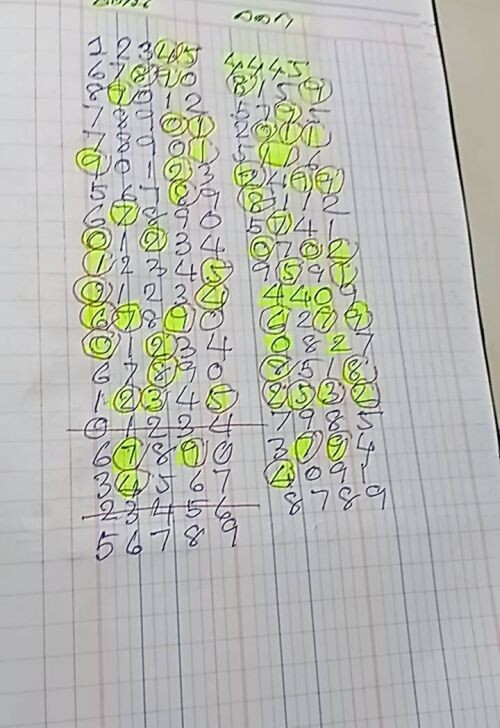 1 2 3 4 5 4 4 4 5
6 7 8 9 0 8 1 5 9
8 9 0 1 2 5 7 9 5
7 8 9 0 1 2 0 1 1
7 8 9 0 1 5 6
9 0 1 2 3 4 9 9
5 6 7 8 9 8 1 1 2
6 7 8 9 0 5 7 4 1
0 1 2 3 4 0 7 0 2
1 2 3 4 5 9 5 9
0 1 2 3 4 4 4 0 9
6 7 8 9 0 6 2 9 9
0 1 2 3 4 0 8 2 7
6 7 8 9 0 8 5 1 8
1 2 3 4 5 2 5 3 2
0 1 2 3 4 7 9 8 5
6 7 8 9 0 3 9 9 4
3 4 5 6 7 4 0 9 1
2 3 4 5 6 8 7 8 9
5 6 7 8 9